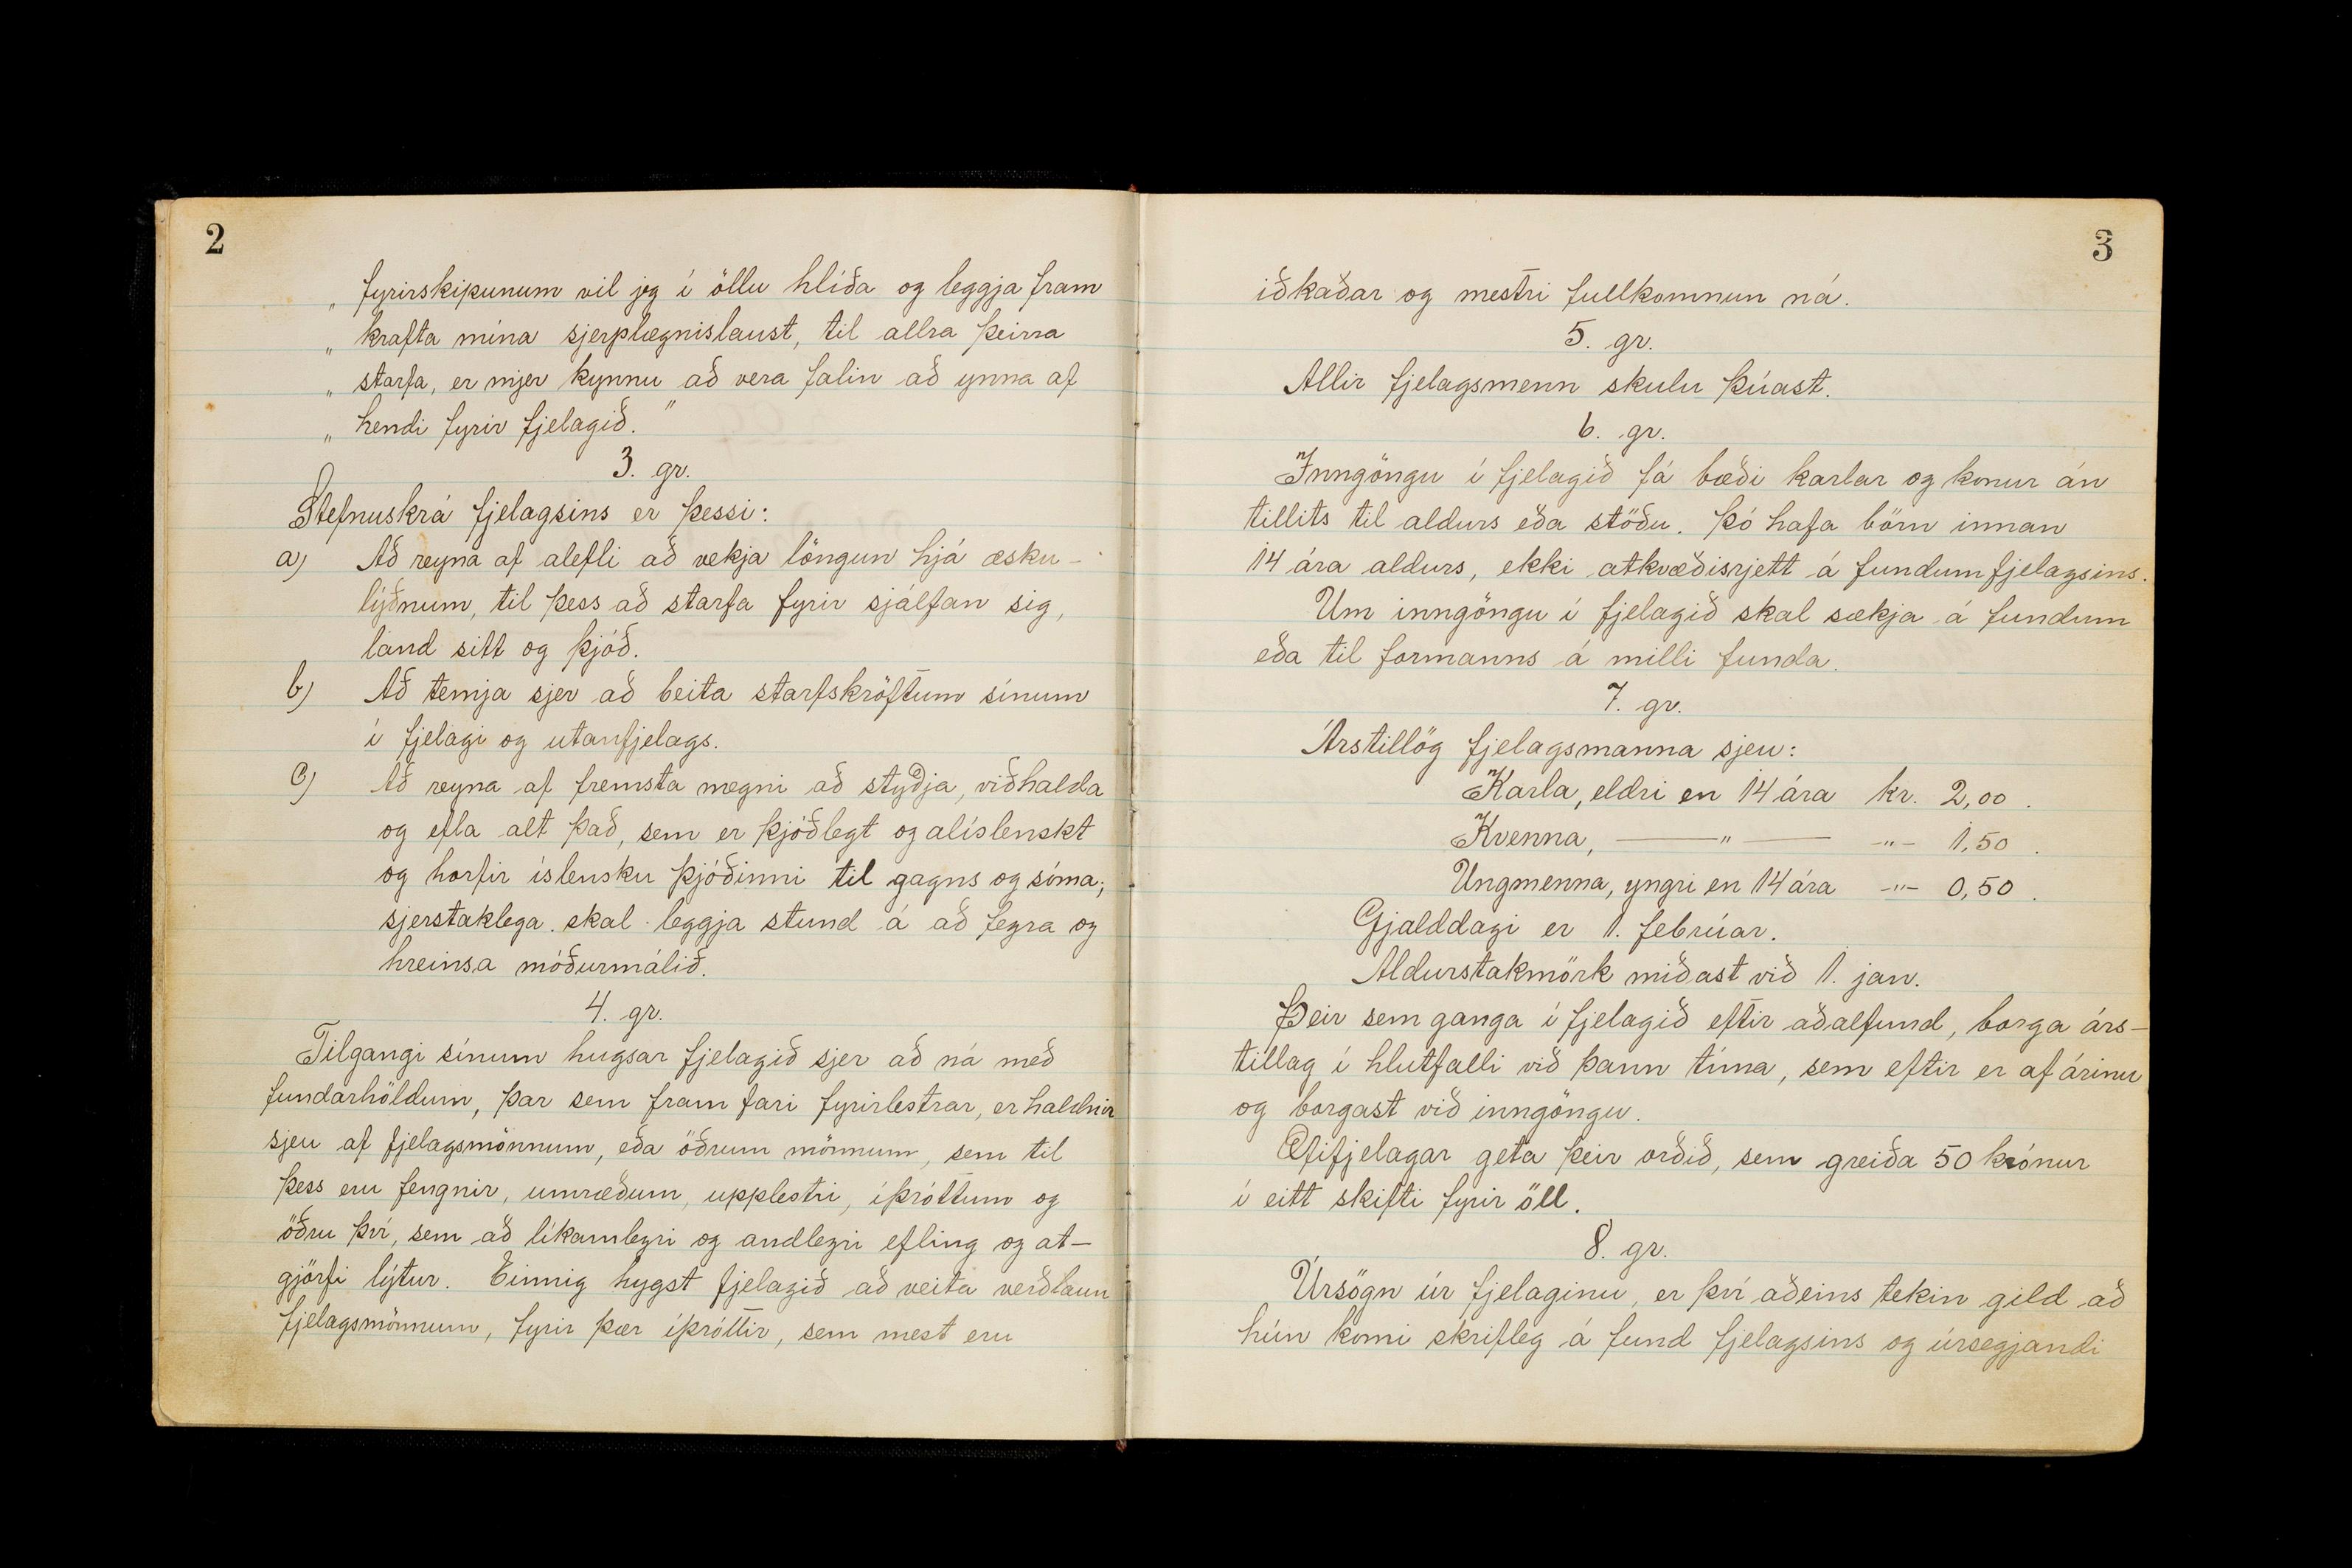 2
„ fyrirskipunum vil jeg í öllu hlíða og leggja fram
„ krafta mína sjerplægnislaust, til allra þeirra
„ starfa, er mjer kynnu að vera falin að ynna af
„ hendi fyrir fjelagið.“
3. gr.
Stefnuskrá fjelagsins er þessi:
a) Að reyna af alefli að vekja löngun hjá æsku-
lýðnum, til þess að starfa fyrir sjálfan sig,
land sitt og þjóð.
b) Að temja sjer að beita starfskröftum sínum
í fjelagi og utanfjelags.
c) Að reyna af fremsta megni að styðja, viðhalda
og efla alt það, sem er þjóðlegt og alíslenskt
og horfir íslensku þjóðinni til gagns og sóma;
sjerstaklega skal leggja stund á að fegra og
hreinsa móðurmálið.
4. gr.
Tilgangi sínum hugsar fjelagið sjer að ná með
fundarhöldum, þar sem fram fari fyrirlestrar, er haldnir
sjeu af fjelagsmönnum, eða öðrum mönnum, sem til
þess eru fengnir, umræðum, upplestri, íþróttum og
öðru því, sem að líkamlegri og andlegri efling og at-
gjörfi lýtur. Einnig hygst fjelagið að veita verðlaun
fjelagsmönnum, fyrir þær íþróttir, sem mest eru
3
iðkaðar og mestri fullkomnun ná.
5. gr.
Allir fjelagsmenn skulu þúast.
6. gr.
Inngöngu í fjelagið fá bæði karlar og konur án
tillits til aldurs eða stöðu. Þó hafa börn innan
14 ára aldurs, ekki atkvæðisrjett á fundum fjelagsins.
Um inngöngu í fjelagið skal sækja á fundum
eða til formanns á milli funda.
7. gr.
Árstillög fjelagsmanna sjeu:
Karla, eldri en 14 ára kr. 2,00.
Kvenna, —„— -„- 1,50.
Ungmenna, yngri en 14 ára -„- 0,50.
Gjalddagi er 1. febrúar.
Aldurstakmörk miðast við 1. jan.
Þeir sem ganga í fjelagið eftir aðalfund, borga árs-
tillag í hlutfalli við þann tíma, sem eftir er af árinu
og borgast við inngöngu.
Æfifjelagar geta þeir orðið, sem greiða 50 krónur
í eitt skifti fyrir öll.
8. gr.
Úrsögn úr fjelaginu, er því aðeins tekin gild að
hún komi skrifleg á fund fjelagsins og úrsegjandi